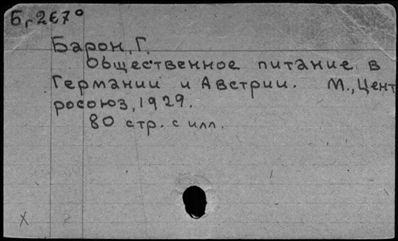 Б, 267°
Барон, Г.
Общественное питание в
Германии и Австрии. М., Цент
росоюз, 1929.
80 стр. с илл.
X